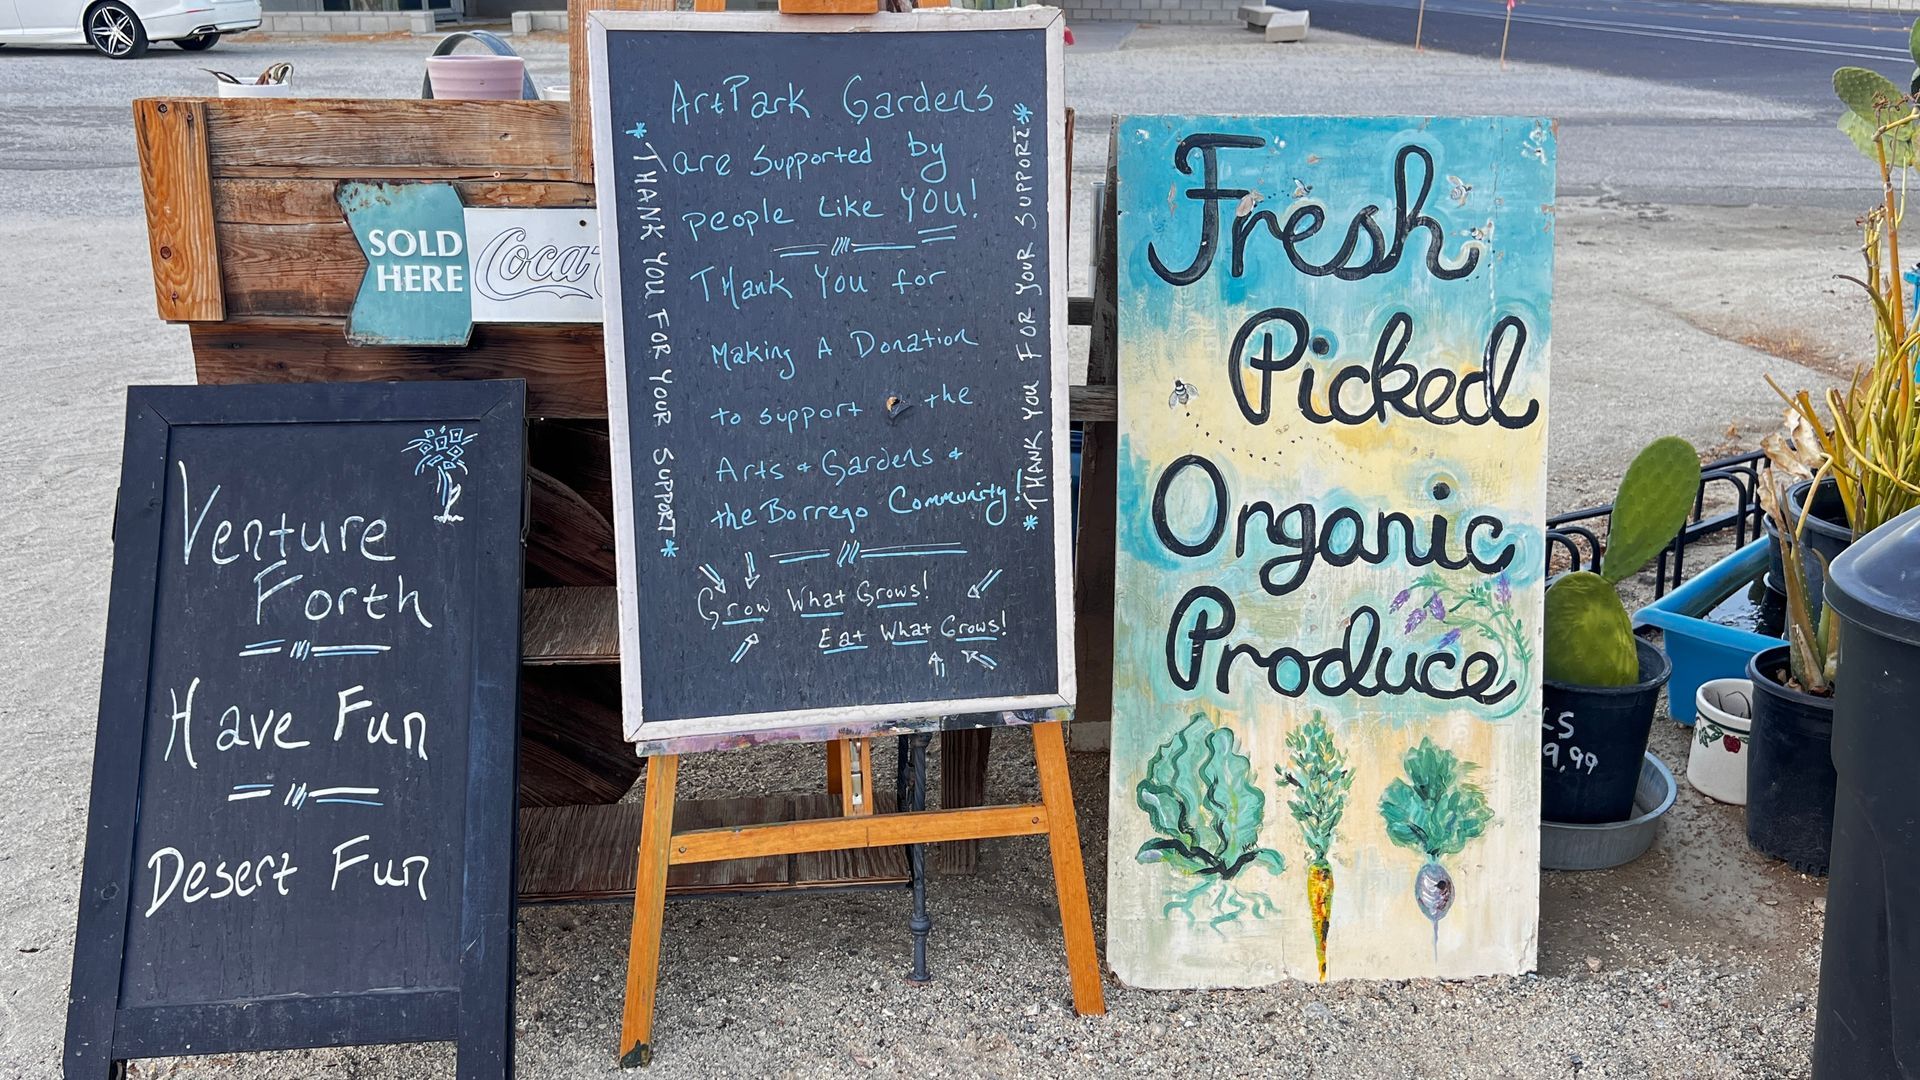 SOLD
HERE
Coca
Venture
Forth
Have Fun
Desert Fun
ArtPark Gardens
are supported by
people like YOU!
Thank You for
Making A Donation
to support the
Arts + Gardens +
the Borrego Community!
Grow What Grows!
Eat What Grows!
*THANK YOU FOR YOUR SUPPORT*
*THANK YOU FOR YOUR SUPPORT*
Fresh
Picked
Organic
Produce
9.99